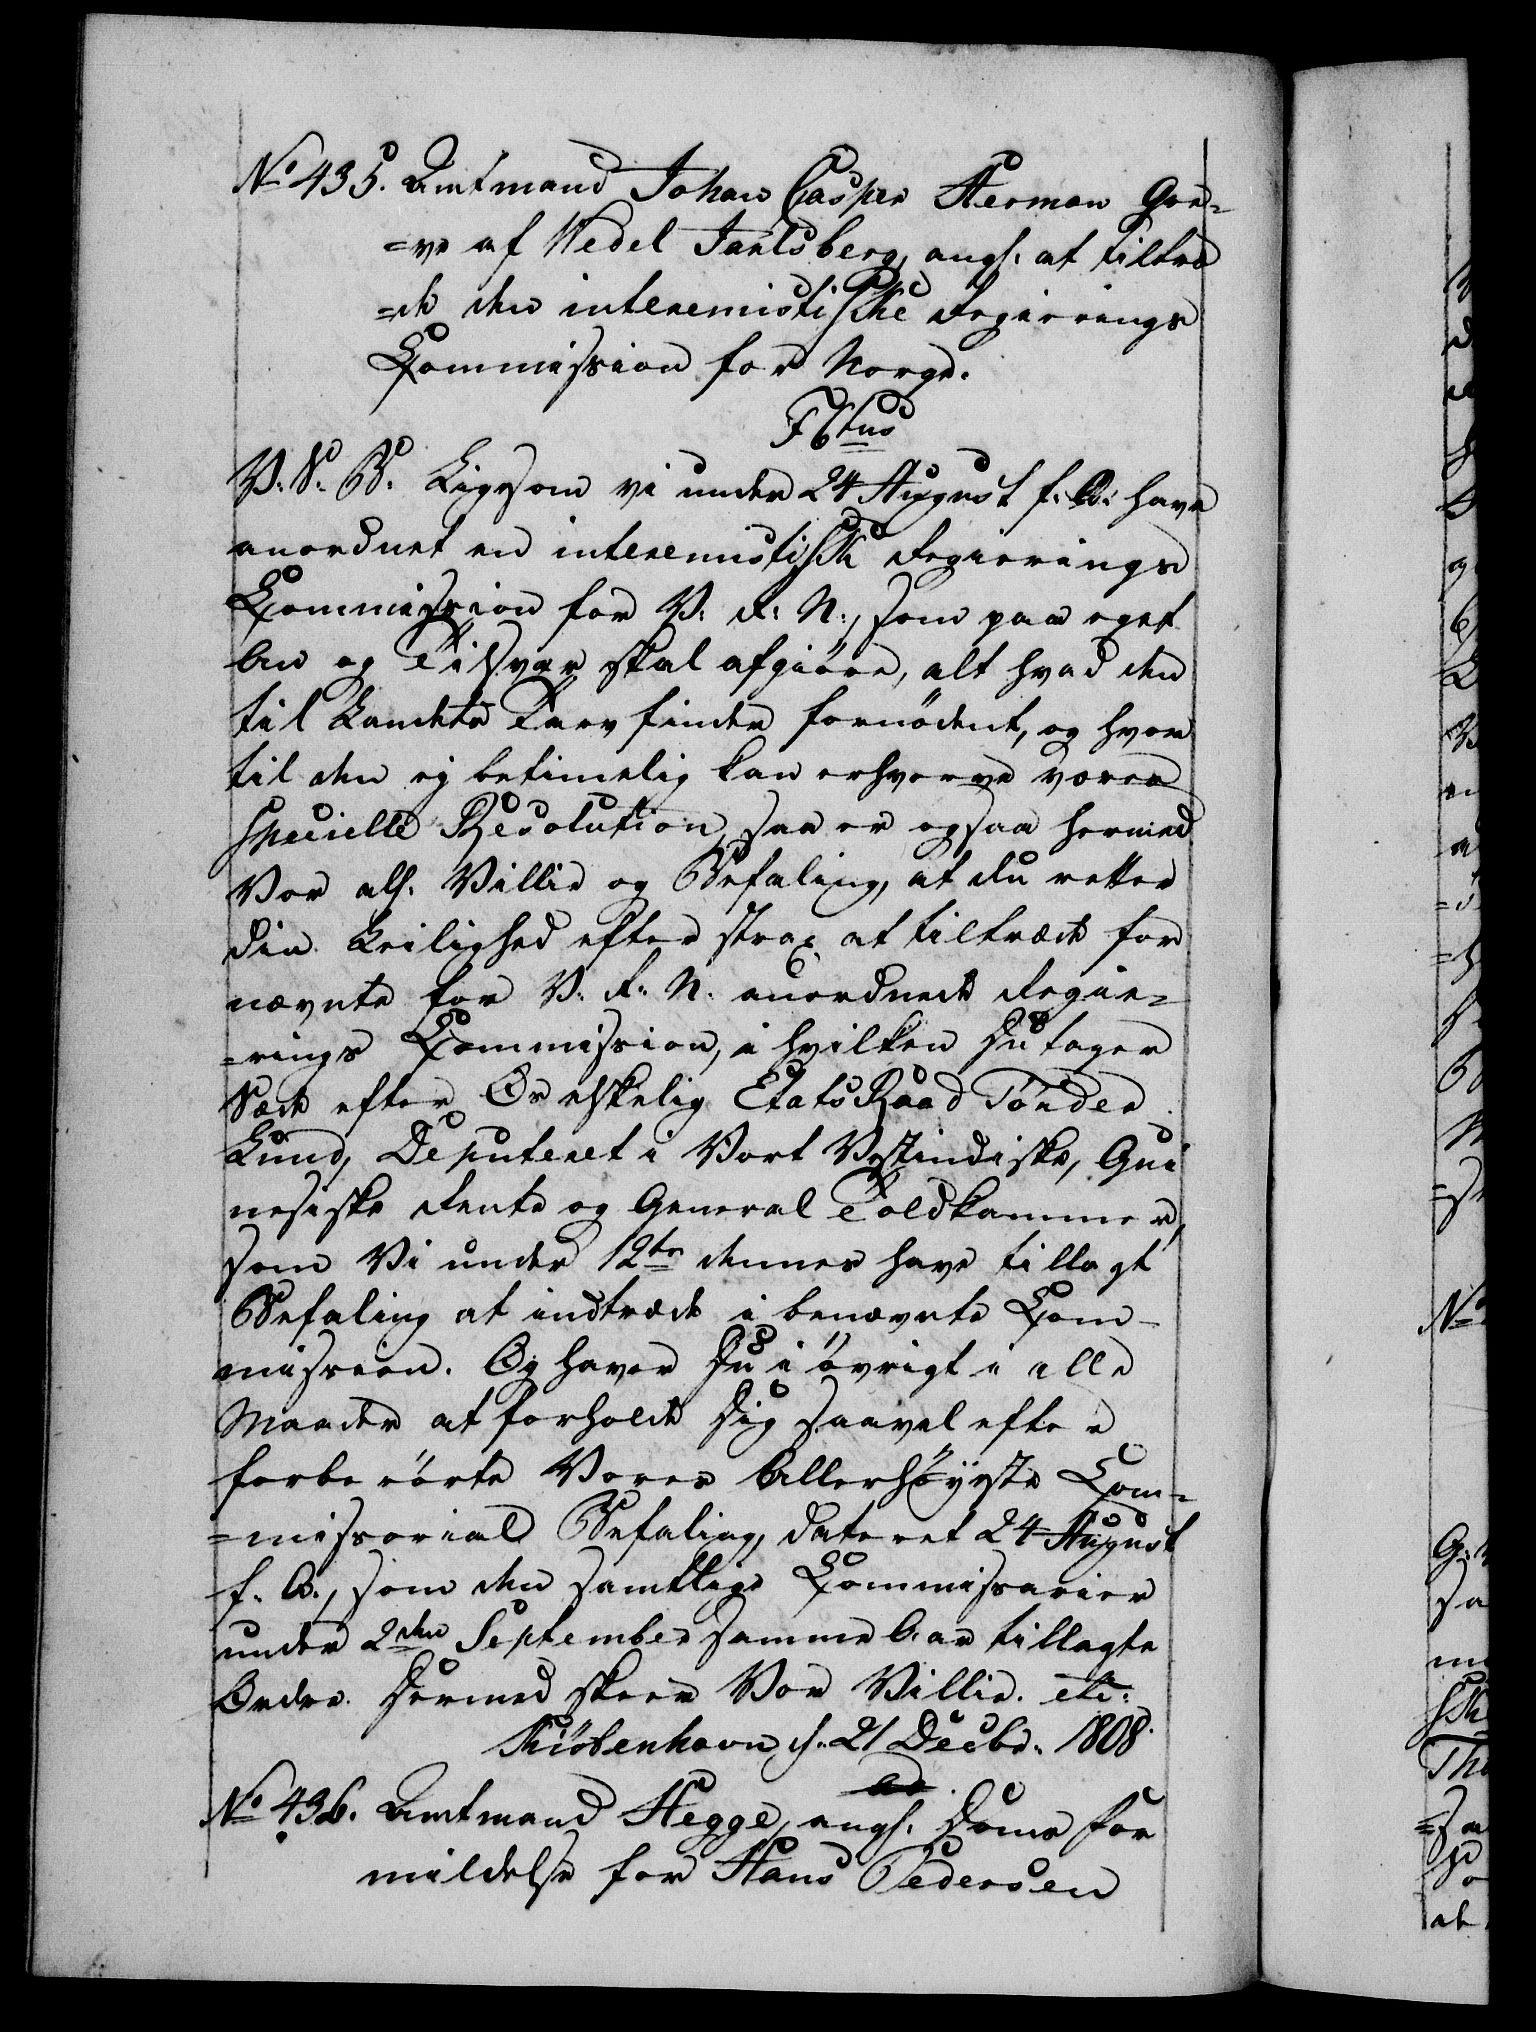 No 435. Amtmand Johan Casper Herman Gre-
=ve af Wedel Jarlsberg, angl. at tiltræ
=de den interemistiske Regierings
Commission for Norge.
F6tus
V. S. B. Ligesom vi under 24 August f. A. have
anordnet en interemistisk Regierings
Commission for V. R. N., som paa eget
An og Tilsvar skal afgiöre, alt hvad den
til Landets Tarv finder fornödent, og hvor
til den ej betimelig kan erhverve vores
specielle Resolution, saa er ogsaa hermed
Vor all. Villie og Befaling, at du retter
din Leilighed efter strax at tiltræde for
nævnte for V. R. N. anordnede Regie-
=rings Commission, i hvilken Du tager
Sæde efter Os elskelig Etats Raad Tönder
Lund, Deputeret i Vort Vestindiske, Gui
nesiske Rente og General Toldkammer,
som Vi under 12te dennes have tillagt
Befaling at indtræde i benævnte Com-
mission. Og haver Du i övrigt i alle
Maader at forholde Dig saavel efter
forberörte Vores Allerhöyeste Com-
=missorial Befaling, dateret 24 August
f. A., som den samtlige Commissarier
under 2den September samme Aar tillagte
Ordre. Dermed skeer Vor Villie. etc.
Kiöbenhavn d. 21 Decbr. 1808.
No 436. Amtmand Hegge, angl. Doms for
mildelse for Hans Pedersen